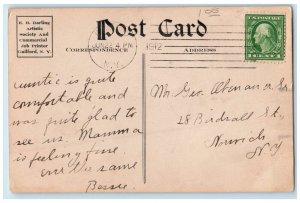 E. H. Darling
Artistic
Society And
Commercial
Job Printer
Guilford, N. Y.
Post Card
CORRESPONDENCE
ADDRESS
4 PM
1912
N.Y.
auntie is quite
comfortable and
was quite glad to
see us. Mamma
is feeling fine.
ever the same
Bessie.
Mr. Geo.
18 Birdsall St.,
Norwich
N.Y.